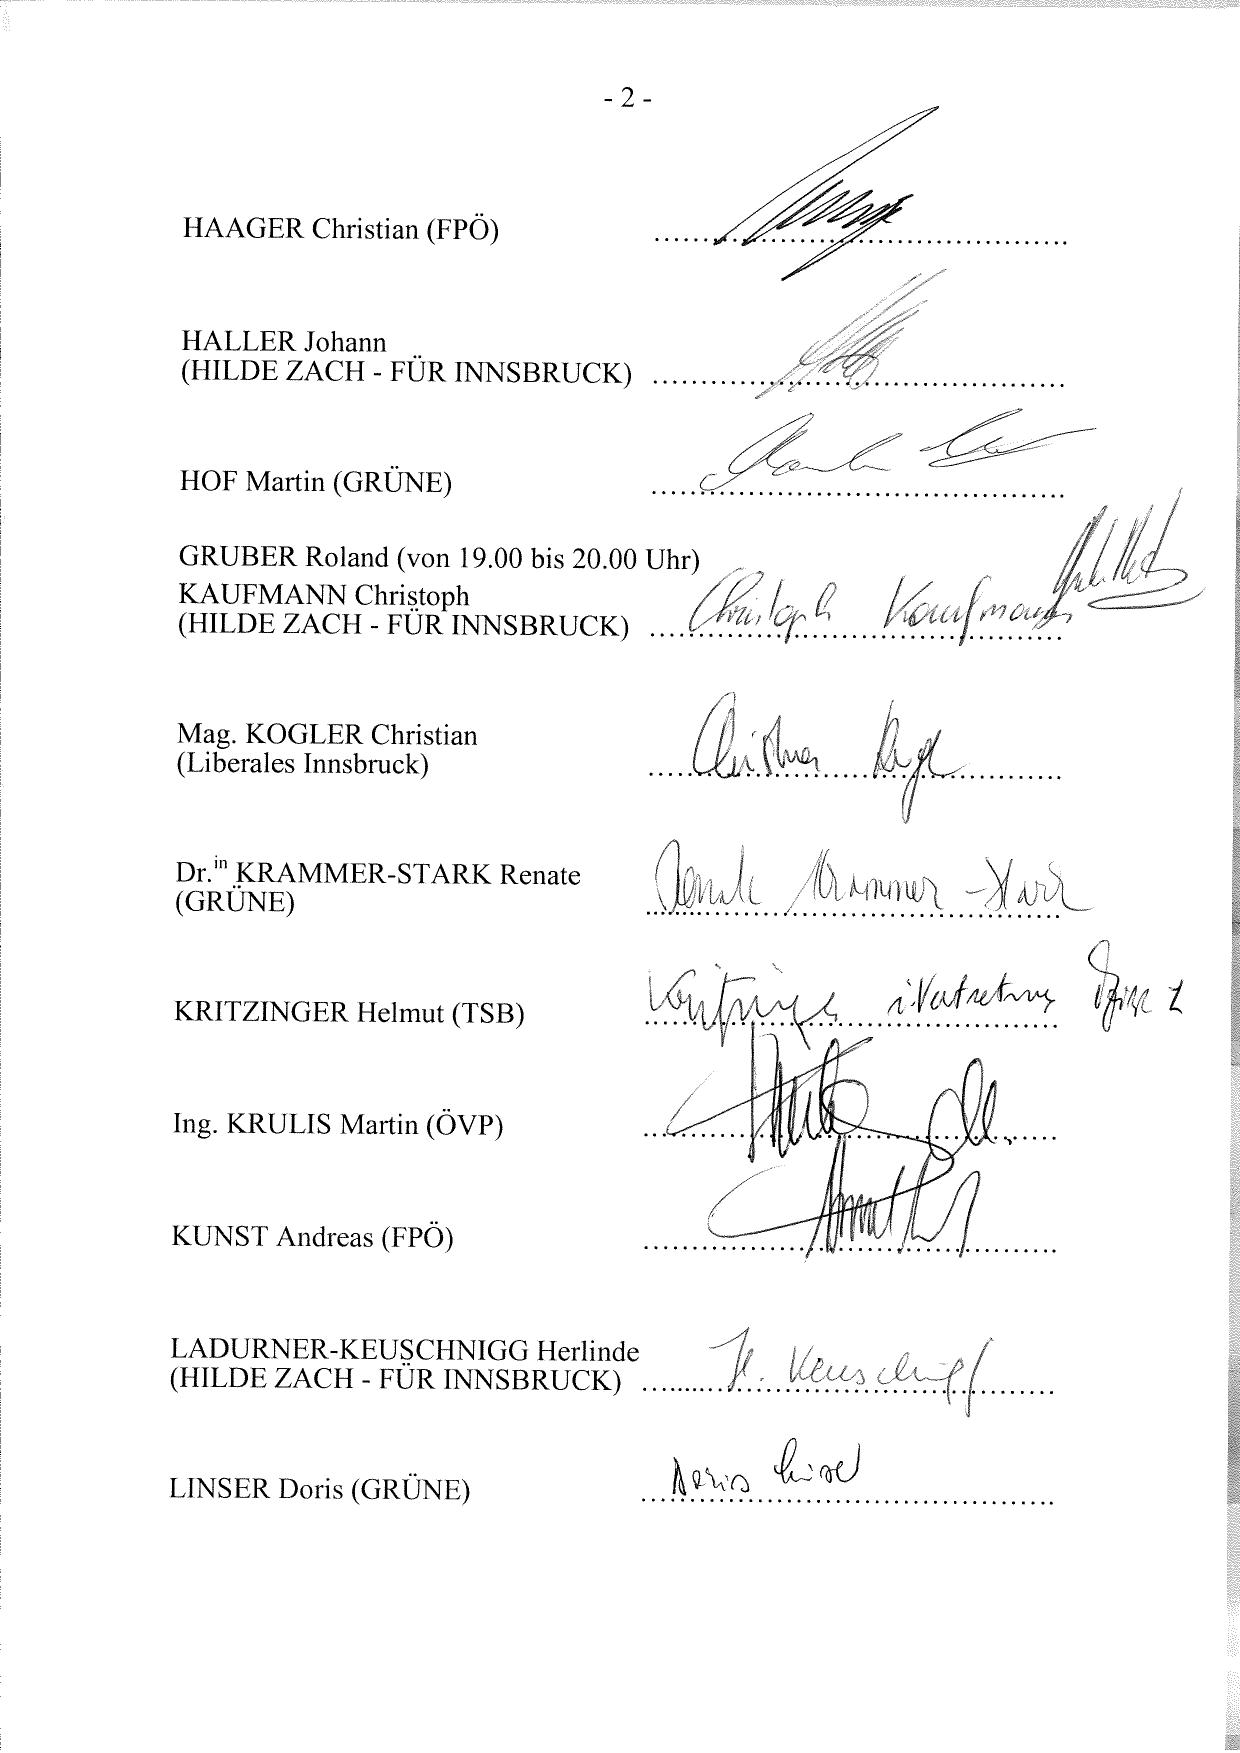 - 2 -
HAAGER Christian (FPÖ)
HALLER Johann
(HILDE ZACH - FÜR INNSBRUCK)
HOF Martin (GRÜNE)
GRUBER Roland (von 19.00 bis 20.00 Uhr)
KAUFMANN Christoph
(HILDE ZACH - FÜR INNSBRUCK) Christoph Kaufmann
Mag. KOGLER Christian
(Liberales Innsbruck) Christian
Dr.in KRAMMER-STARK Renate
(GRÜNE) Renate Krammer-Stark
KRITZINGER Helmut (TSB)
Ing. KRULIS Martin (ÖVP)
KUNST Andreas (FPÖ)
LADURNER-KEUSCHNIGG Herlinde
(HILDE ZACH - FÜR INNSBRUCK) H. Keuschnigg
LINSER Doris (GRÜNE) Doris Linser